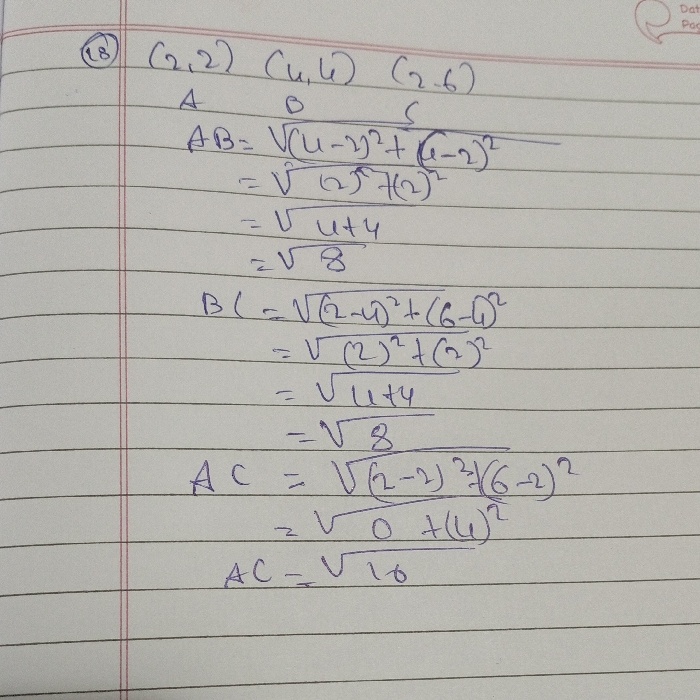 Dat
Pag
(18) (2,2) (4,4) (2-6)
A B C
AB = √(4-2)² + (4-2)²
= √(2)² + (2)²
= √4+4
= √8
BC = √(2-4)² + (6-4)²
= √(2)² + (2)²
= √4+4
= √8
AC = √(2-2)² + (6-2)²
= √0 + (4)²
AC = √16